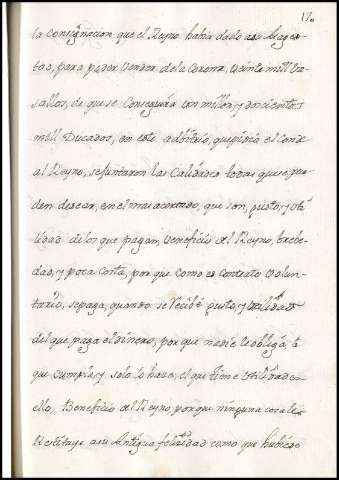 la consignacion que el Reyno habia dado a su Mages-
tad, para poder vender de la Corona, veinte mill va-
sallos, de que se conseguira un millon, y docientos
mill Ducados, en este adbitrio, que pidio el Conde
al Reyno, se juntaron las Calidades todas que se pue-
den desear, en el mas acertado, que son, gusto, y uti-
lidad de los que pagan, Beneficio del Reyno, breve-
dad, y poca costa, por que como es contrato volun-
tario, se paga, quando se recibe gusto, y utilidad
del que paga el dinero, por que nadie le obliga, a
que cumpla, y solo lo hace, el que tiene utilidad en
ello, Beneficio del Reyno, porque ninguna cosa le
Restituye a su Antigua felicidad como que hubiese